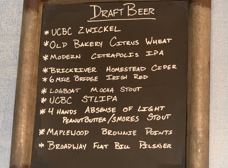 DRAFT BEER
* UCBC ZWICKEL
* OLD BAKERY CITRUS WHEAT
* MODERN CITRAPOLIS IPA
* BRICKRIVER HOMESTEAD CIDER
* 6 MILE BRIDGE IRISH RED
* LOGBOAT MOCHA STOUT
* UCBC STLIPA
* 4 HANDS ABSENSE OF LIGHT
PEANUT BUTTER/SMORES STOUT
* MAPLEWOOD BROWNIE POINTS
* BROADWAY FLAT BILL PILSNER